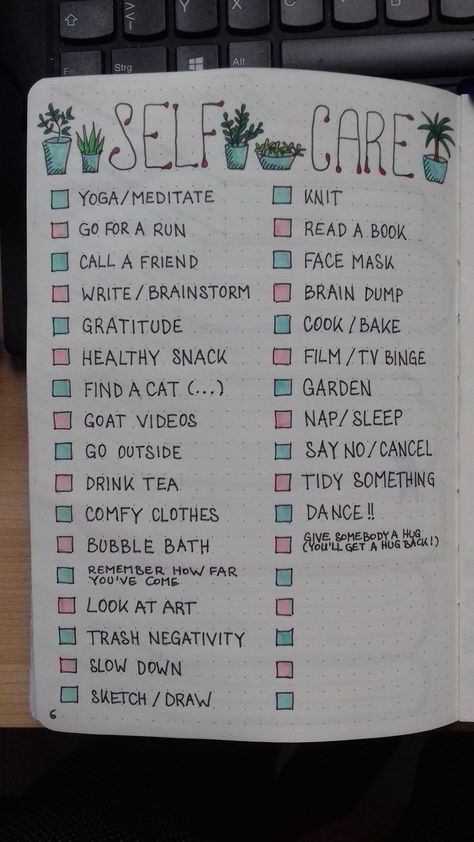 C
V
Fn
Strg
Alt
SELF CARE
YOGA/MEDITATE
GO FOR A RUN
CALL A FRIEND
WRITE/BRAINSTORM
GRATITUDE
HEALTHY SNACK
FIND A CAT (...)
GOAT VIDEOS
GO OUTSIDE
DRINK TEA
COMFY CLOTHES
BUBBLE BATH
REMEMBER HOW FAR
YOU'VE COME
LOOK AT ART
TRASH NEGATIVITY
SLOW DOWN
SKETCH / DRAW
6
KNIT
READ A BOOK
FACE MASK
BRAIN DUMP
COOK/BAKE
FILM/TV BINGE
GARDEN
NAP/SLEEP
SAY NO/CANCEL
TIDY SOMETHING
DANCE!!
GIVE SOMEBODY A HUG
(YOU'LL GET A HUG BACK!)